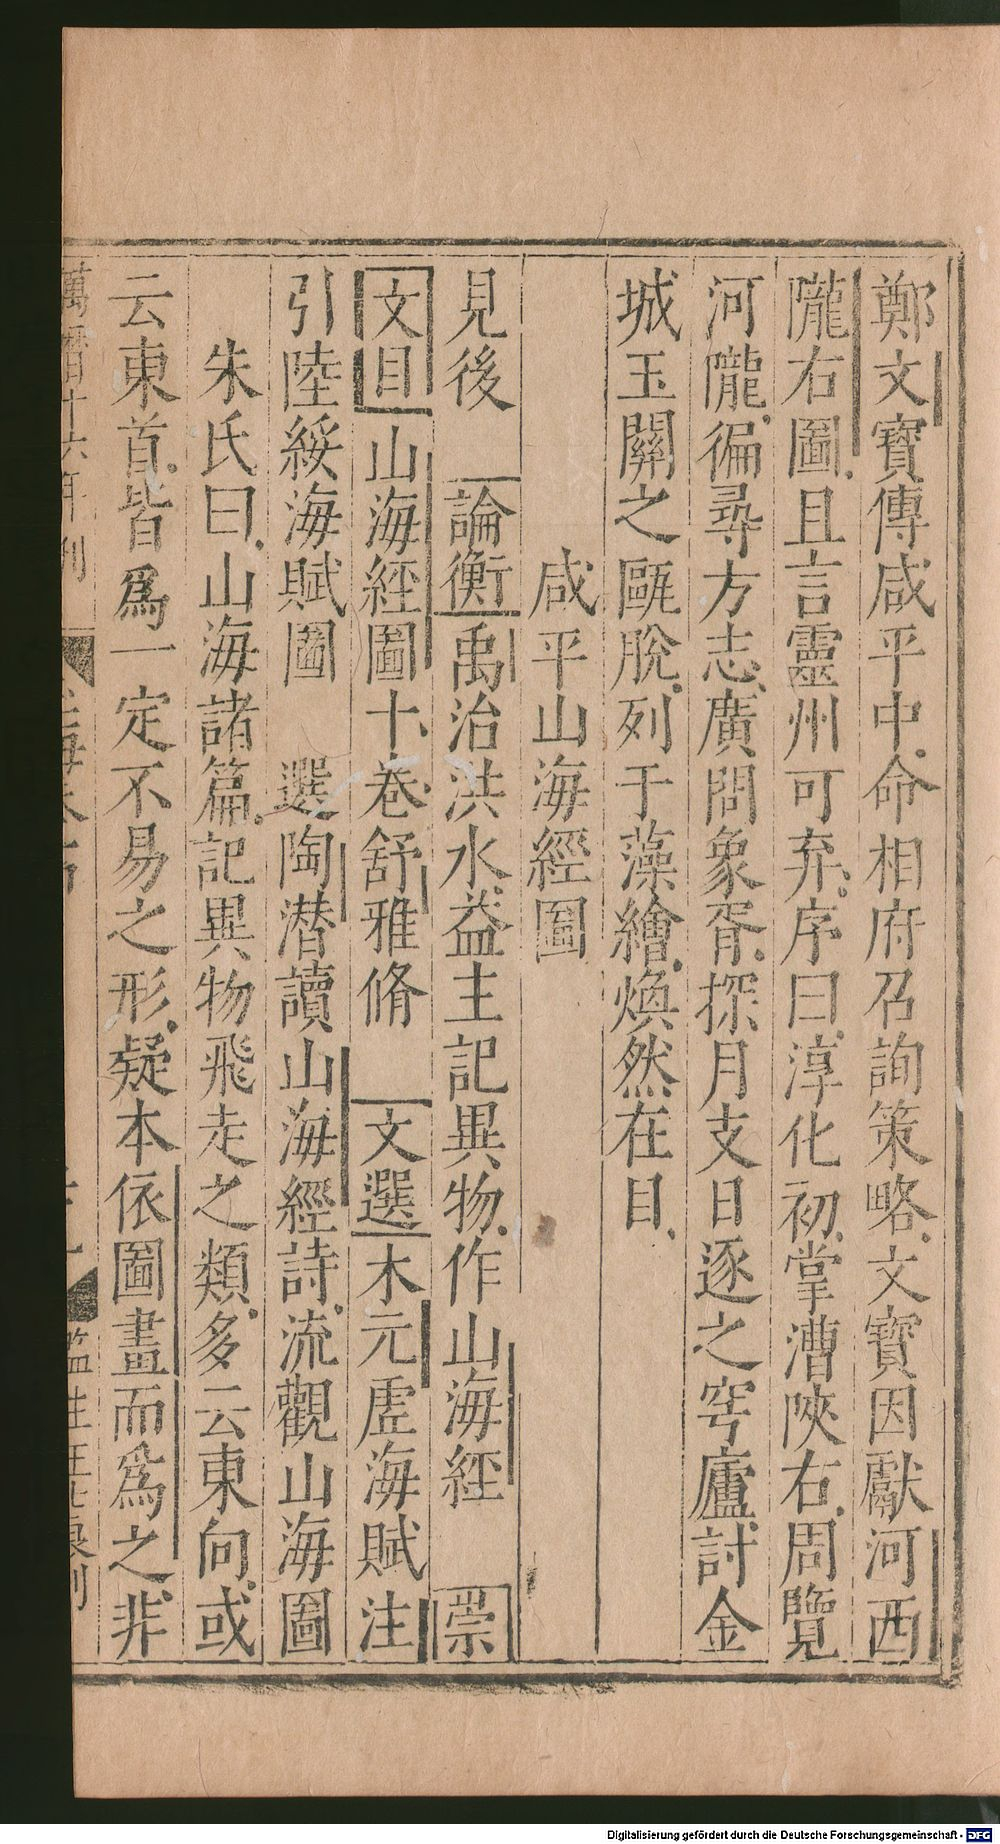 鄭文寳傳咸平中命相府召詢策略文寳因獻河西
隴右圖且言靈州可弃序曰淳化初掌漕陜右周覽
河隴徧尋方志廣問象胥探月支日逐之穹廬討金
城玉關之甌脫列于藻繪煥然在目
咸平山海經圖
見後 論衡禹治洪水益主記異物作山海經 崇
文目山海經圖十卷舒雅脩 文選木元虛海賦注
引陸綏海賦圖 選陶潜讀山海經詩流觀山海圖
朱氏曰山海諸篇記異物飛走之類多云東向或
云東首皆爲一定不易之形疑本依圖畫而爲之非
萬曆十六年刊
Digitalisierung gefördert durch die Deutsche Forschungsgemeinschaft - DFG